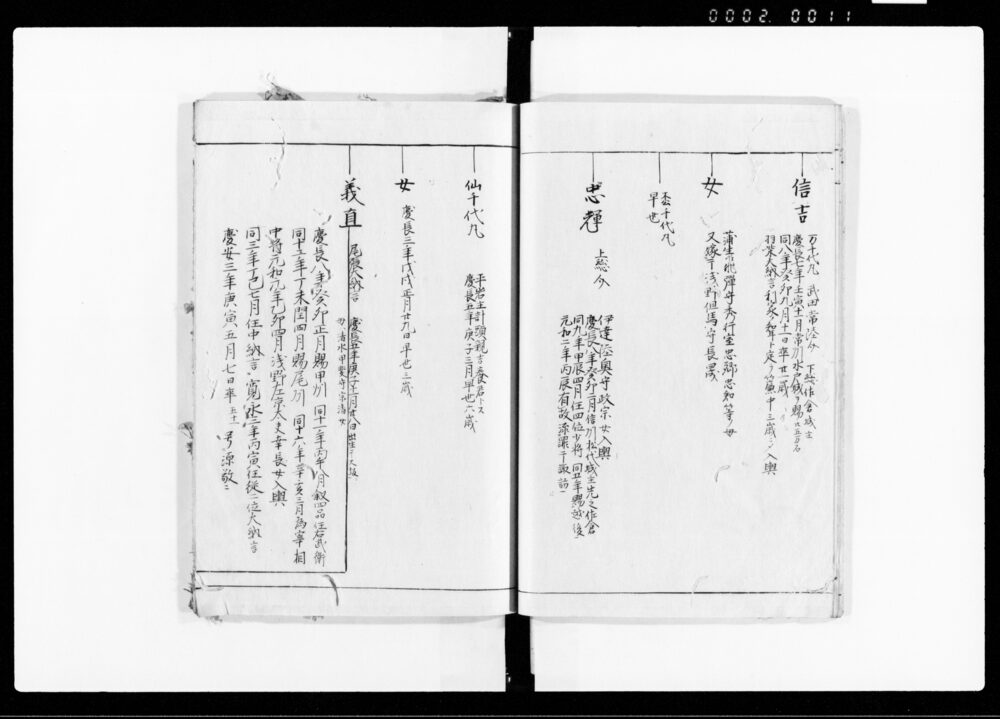 0002.0011
信吉
万千代丸 武田常陸介 下総作倉城主
慶長七年壬寅十一月常州水戸城ヲ賜
同八年癸卯九月十一日卒廿一歳
女
蒲生飛弾守秀行室忠郷忠知等ノ母
又嫁于浅野但馬守長晟
早世
忠輝
上総介
伊達陸奥守政宗女入輿
慶長八年癸卯二月信州松代城主先之作倉
同九年甲辰四月任四位少将 同五年賜越後
元和二年丙辰有故漆謙于諏訪
仙千代丸
平岩主計頭親吉養君トス
慶長五年庚子三月早世六歳
女
慶長三年戊戌正月廿九日早世三歳
義直
尾張大納言
慶長五年庚子十一月廿八日出生于大坂
母 清水甲斐守宗清女
慶長八年癸卯正月賜甲州 同十一年丙午八月叙四品任右武衛
同十二年丁未閏四月賜尾州 同十六年辛亥三月為宰相
中将元和元年乙卯四月浅野左京大夫幸長女入輿
同三年丁巳七月任中納言 寛永三年丙寅任従二位大納言
慶安三年庚寅五月七日卒 五十一 号源敬